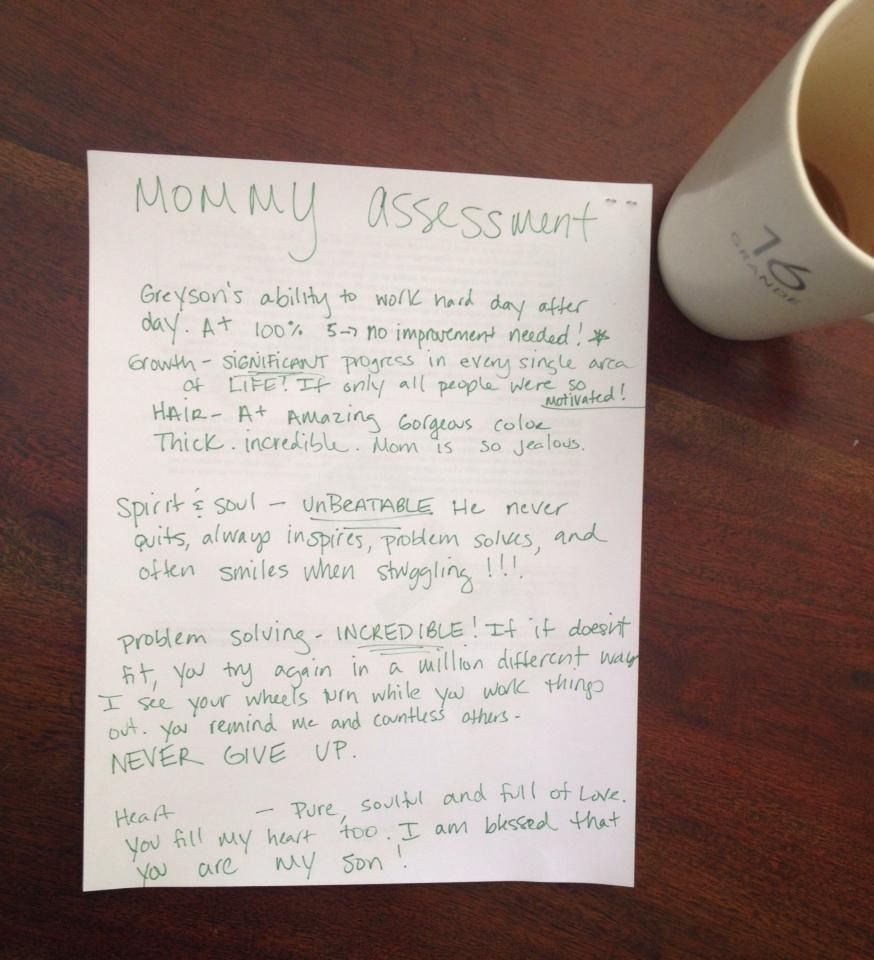 MOMMY assessment
Greyson's ability to work hard day after
day. A+ 100% 5→ no improvement needed! *
Growth - SIGNIFICANT progress in every single area
of LIFE! If only all people were so
motivated!
HAIR - A+ Amazing Gorgeous color
Thick. incredible. Mom is so jealous.
Spirit & soul - UnBEATABLE He never
quits, always inspires, problem solves, and
often smiles when struggling!!!
problem solving - INCREDIBLE! If it doesn't
fit, you try again in a million different ways
I see your wheels turn while you work things
out. you remind me and countless others -
NEVER GIVE UP.
Heart - Pure, soulful and full of Love.
You fill my heart too. I am blessed that
you are my son!
16
GRANDE